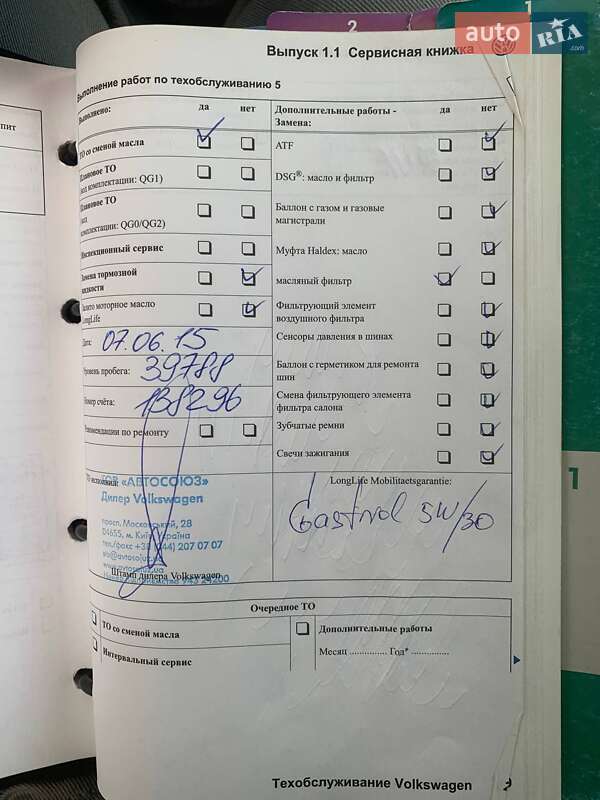 2
1
auto RIA .com
пит
Выпуск 1.1 Сервисная книжка
Выполнение работ по техобслуживанию 5
Выполнено:
да
нет
ТО со сменой масла
Плановое ТО
комплектации: QG1)
Плановое ТО
комплектации: QG0/QG2)
Инспекционный сервис
Замена тормозной
жидкости
Залито моторное масло
LongLife
Дата: 07.06.15
Уровень пробега: 39788
Номер счёта: 138296
Рекомендации по ремонту
ТО исполнил:
ТОВ «АВТОСОЮЗ»
Дилер Volkswagen
просп. Московський, 28
04655, м. Київ, Україна
тел./факс +38 (044) 207 07 07
www.avtosojuz.ua
Штамп дилера Volkswagen
Дополнительные работы -
Замена:
да
нет
ATF
DSG®: масло и фильтр
Баллон с газом и газовые
магистрали
Муфта Haldex: масло
масляный фильтр
Фильтрующий элемент
воздушного фильтра
Сенсоры давления в шинах
Баллон с герметиком для ремонта
шин
Смена фильтрующего элемента
фильтра салона
Зубчатые ремни
Свечи зажигания
LongLife Mobilitaetsgarantie:
Castrol 5W/30
Очередное ТО
ТО со сменой масла
Интервальный сервис
Дополнительные работы
Месяц ............... Год* ...............
Техобслуживание Volkswagen
1